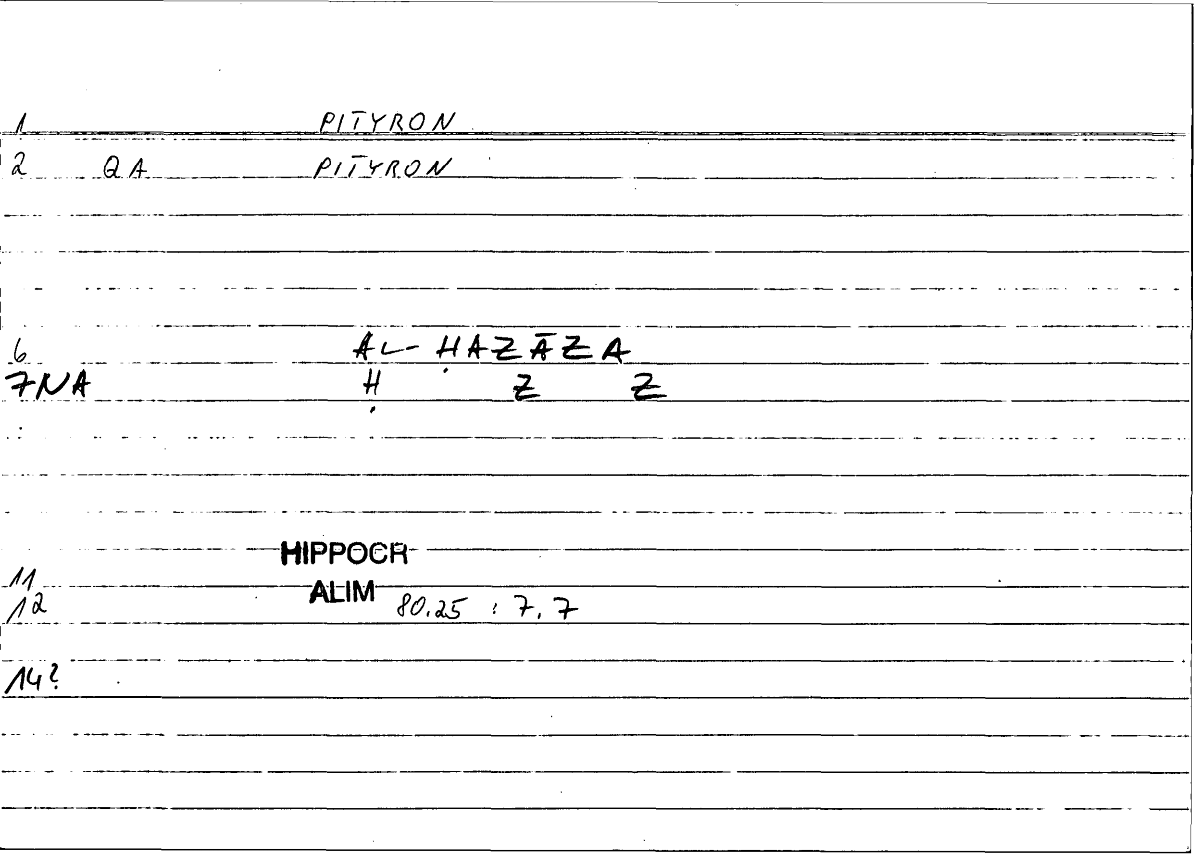 1 PITYRON
2 QA PITYRON
6 AL-ḤAZĀZA
7NA Ḥ Z Z
HIPPOCR
11
ALIM
12 80.25 : 7.7
14?